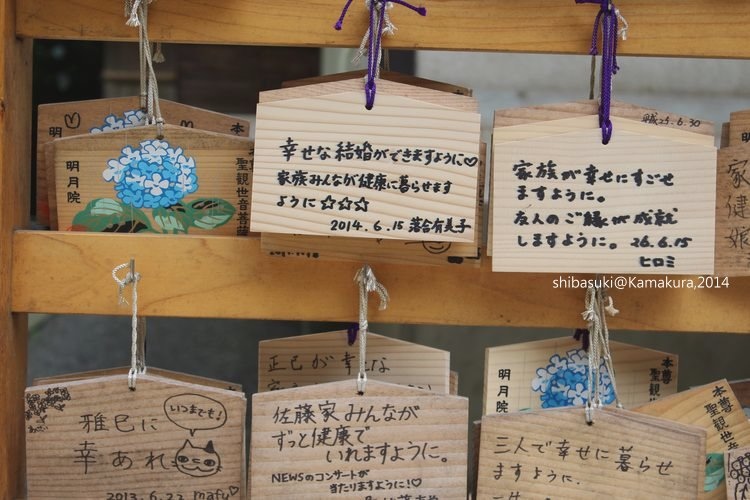 明月院
本
聖観世音菩薩
幸せな結婚ができますように♡
家族みんなが健康に暮らせます
ように☆☆☆
2014.6.15 落合有美子
6.30
家族が幸せにすごせ
ますように。
友人のご縁が成就
しますように。 26.6.15
ヒロミ
家
健
shibasuki@Kamakura,2014
雅巳に
幸あれ
いつまでも!
2013.6.22 mafu♡
正巳が幸せな
佐藤家みんなが
ずっと健康で
いれますように。
NEWSのコンサートが
当たりますように!!
明月院
本尊
聖観世音
三人で幸せに暮らせ
ますように.
本尊
聖観世音